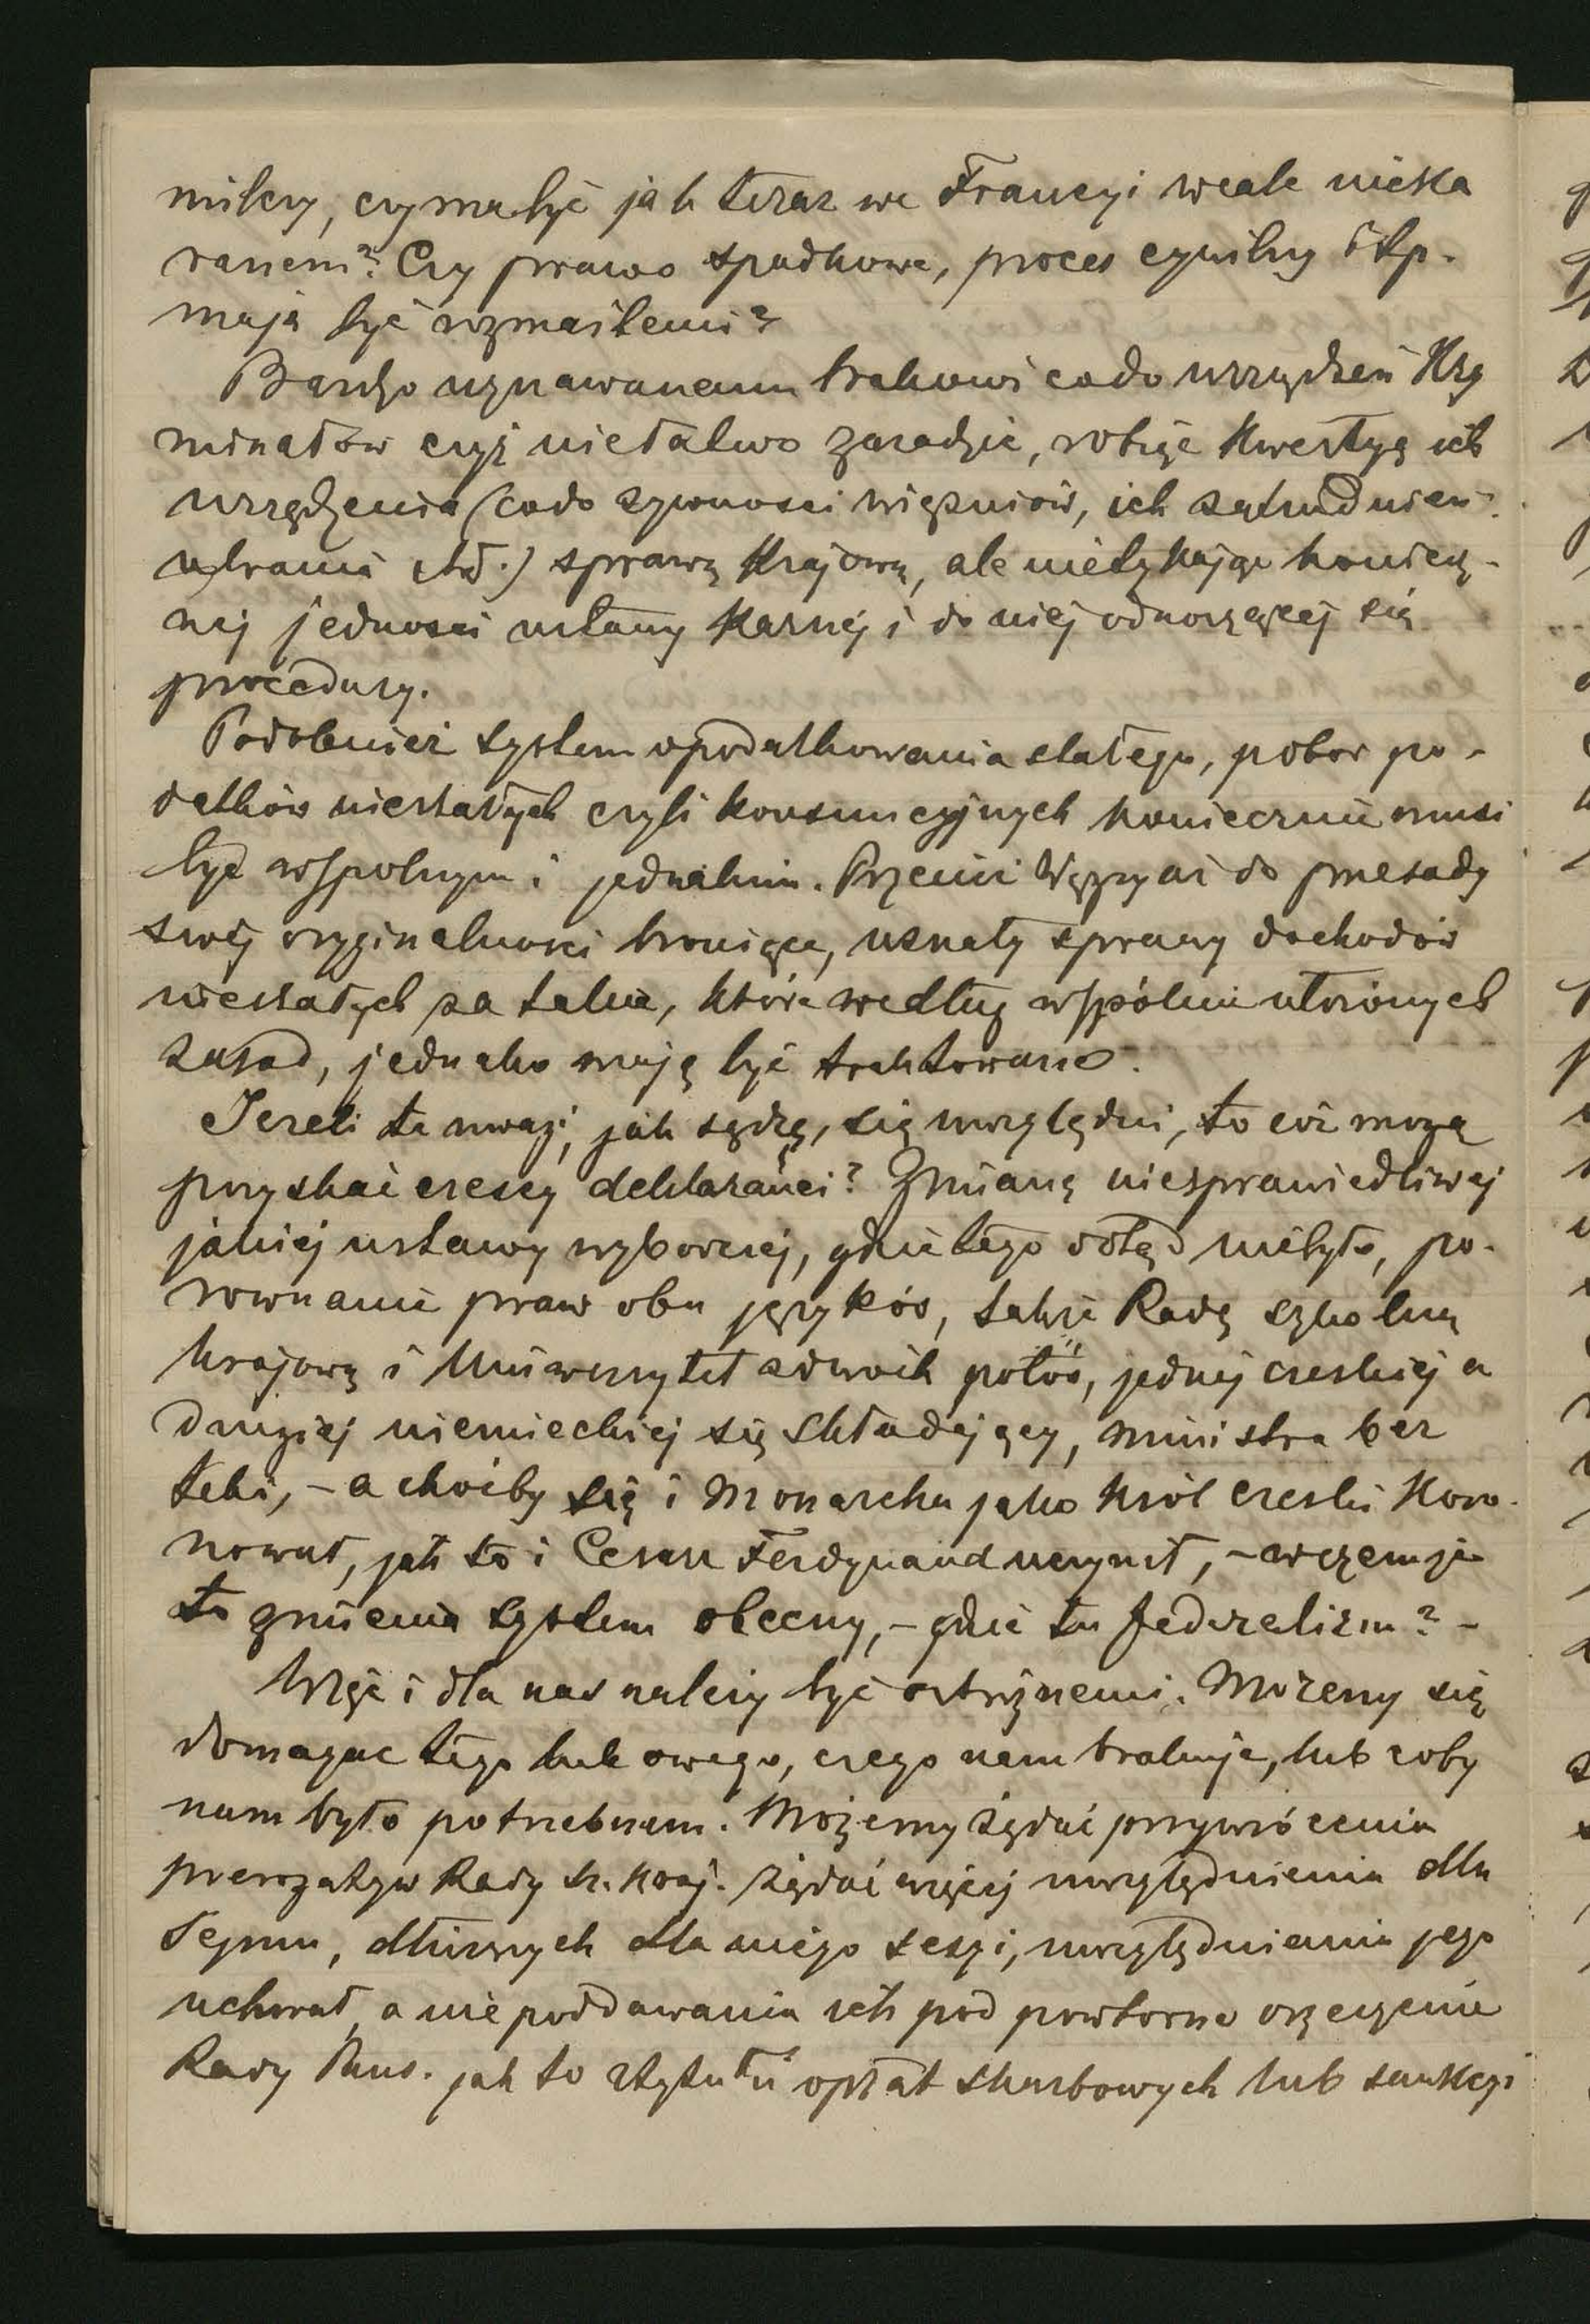 milcry, czy ma być jak teraz we Francyi wcale nieka
ranem? Czy prawo spadkowe, proces cywilny itp.
mają być rozmaitemi?
Bardzo uznawanemu brakowi co do urządzeń Kry
minałów czyż nie łatwo zaradzić, robiąc kwestyą ich
urządzenia (co do żywności więźniów, ich zatrudnień
ubrania itd.) sprawą krajową, ale nietykając koniecz-
nej jedności ustawy karnéj i do niej odnoszącej się
procedury.
Podobnież system opodatkowania stałego, pobor po-
datków niestałych czyli konsumcyjnych koniecznie musi
być wspolnym i jednakim. Przecież Węgry aż do przesady
swéj oryginalności broniące, uznały sprawy dochodów
niestałych za takie, które według wspólnie ułożonych
zasad, jednako mają być traktowane.
Jeżeli te uwagi, jak sądzę, się uwzględni, to cóż mogą
pozyskać czescy deklaranci? Zmianę niesprawiedliwej
jakiéj ustawy wyborczej, gdzie tego dotąd niebyło, po-
rownanie praw obu języków, także Radę szkolną
krajową i Uniwersytet z dwoch połów, jednéj czeskiéj a
drugiéj niemieckiéj się składający, ministra bez
teki, - a choćby się i Monarcha jako król czeski koro-
nował, jak to i Cesarz Ferdynand uczynił, - w czemże
to zmienia system obecny, - gdzie tu federalizm? -
Więc i dla nas należy być ostrożnemi. Możemy się
domagac tego lub owego, czego nam brakuje, lub coby
nam było potrzebnem. Możemy żądać przywrócenia
prerogatyw Rady sz. kraj. żądać więcéj uwzględnienia dla
Sejmu, dłuższych dla niego sesyi, uwzględnienia jego
uchwał, a nie poddawania ich pod powtorne orzeczenie
Rady Pańs. jak to z tytułu opłat skarbowych lub sankcyi